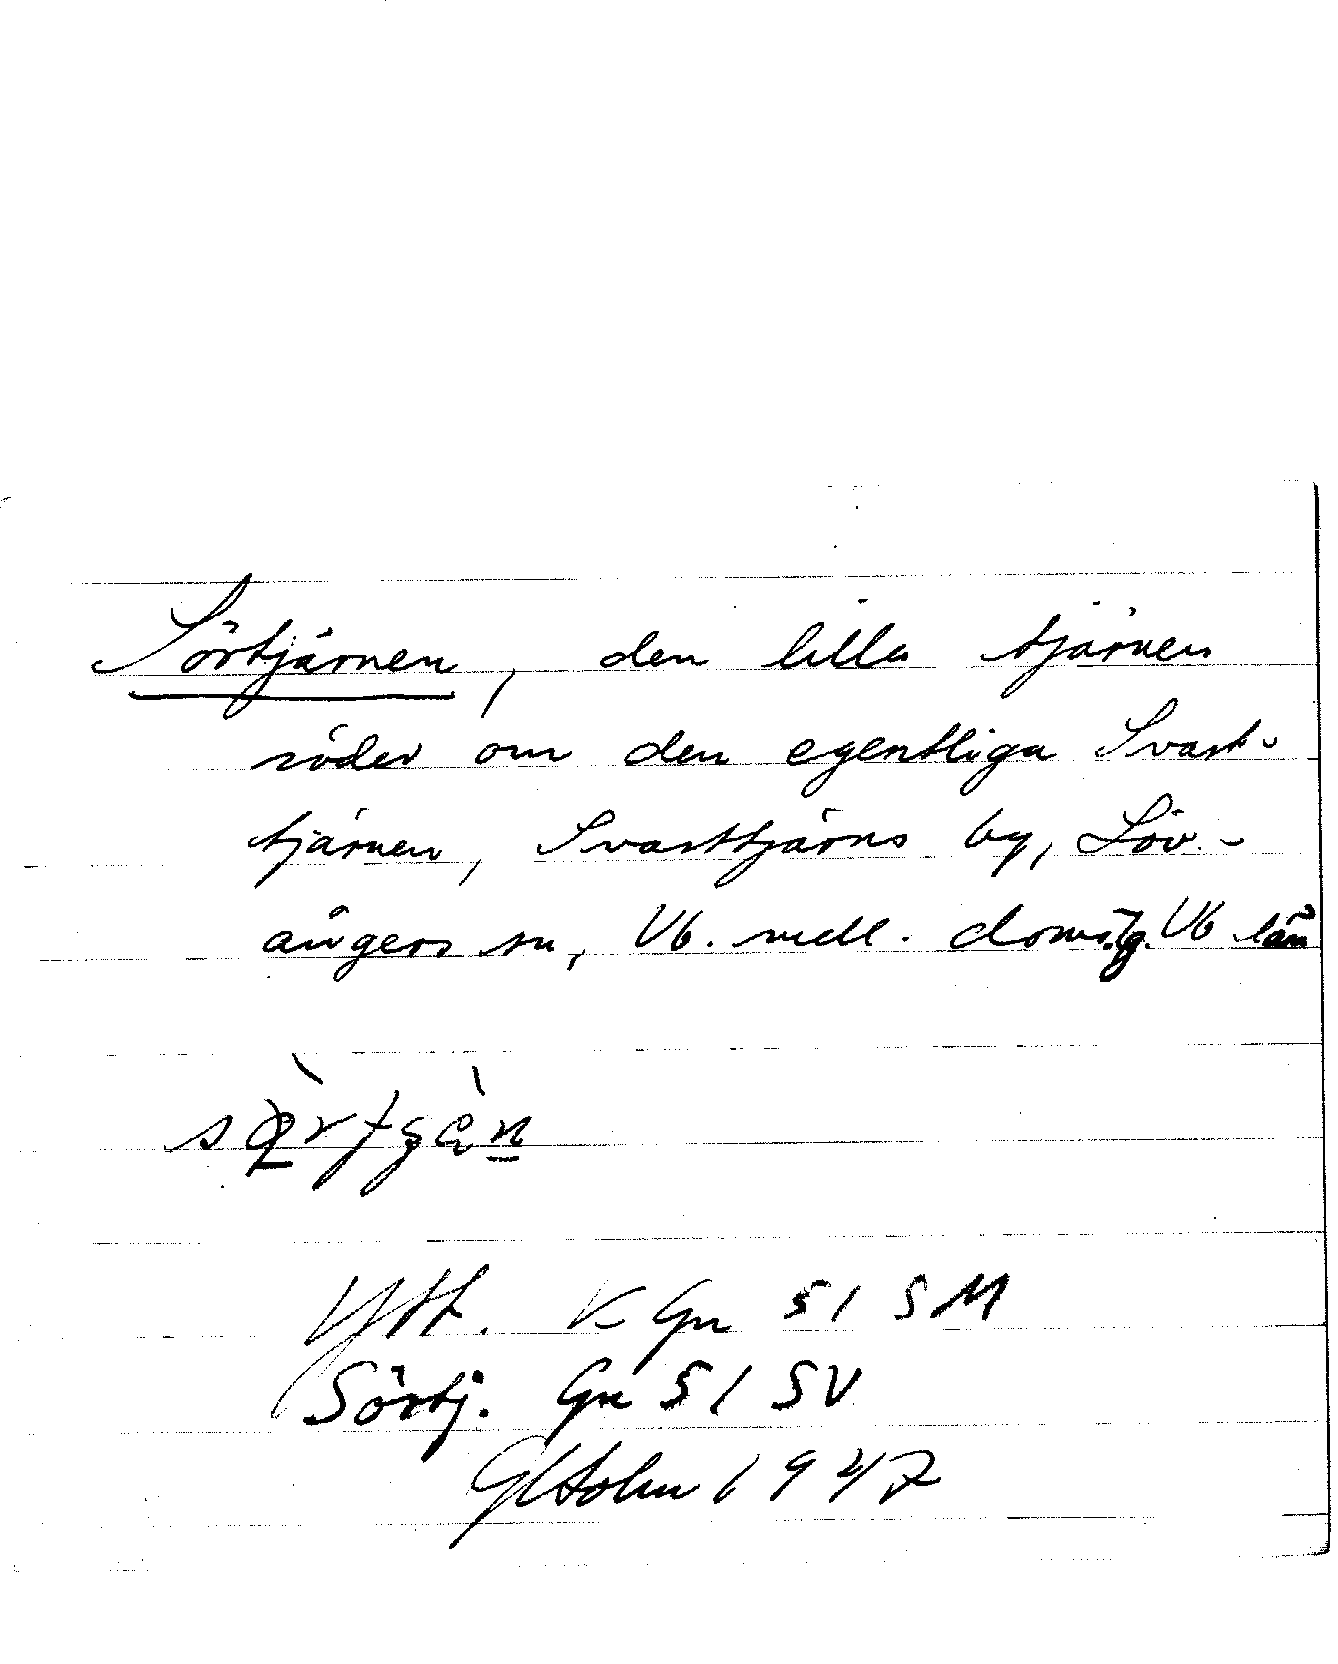 Sörtjärnen, den lilla tjärnen
söder om den egentliga Svart-
tjärnen, Svarttjärns by, Löv-
ångers sn, Vb. mell. domsg. Vb län
Utt. K Gn 51 SM
Sörtj. Gn 51 SV
GHolm 1947